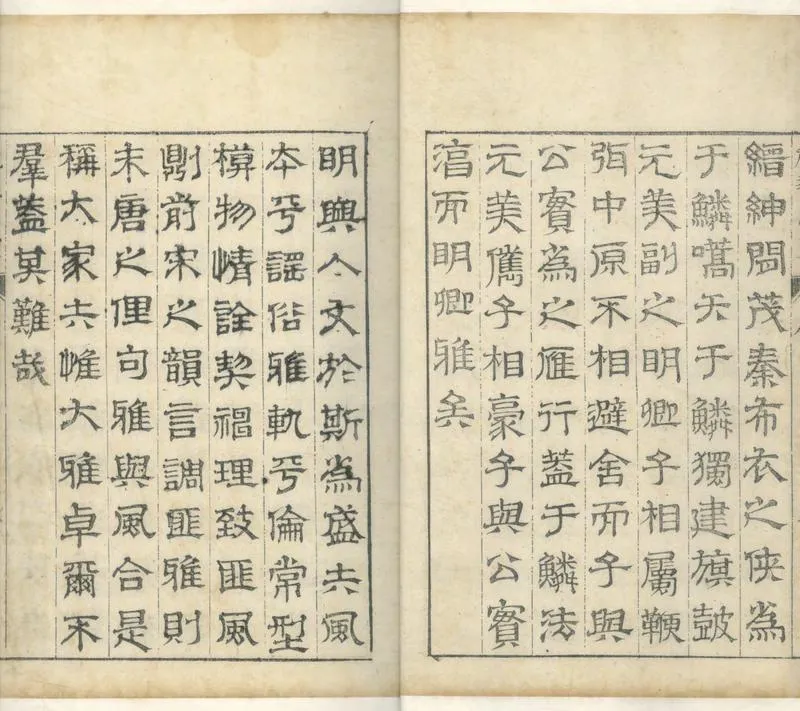 縉紳間茂秦布衣之俠為
于鱗嚆矢于鱗獨建旗鼓
元美副之明卿子相屬鞭
弭中原不相避舍而子與
公實為之雁行蓋于鱗法
元美儁子相豪子與公實
而明卿雅矣
明興人文於斯為盛夫風
本乎謠俗雅軌乎倫常型
模物情詮契理致匪風
則前宋之韻言調匪雅則
末唐之俚句雅與風合是
稱大家夫惟大雅卓爾不
羣蓋其難哉